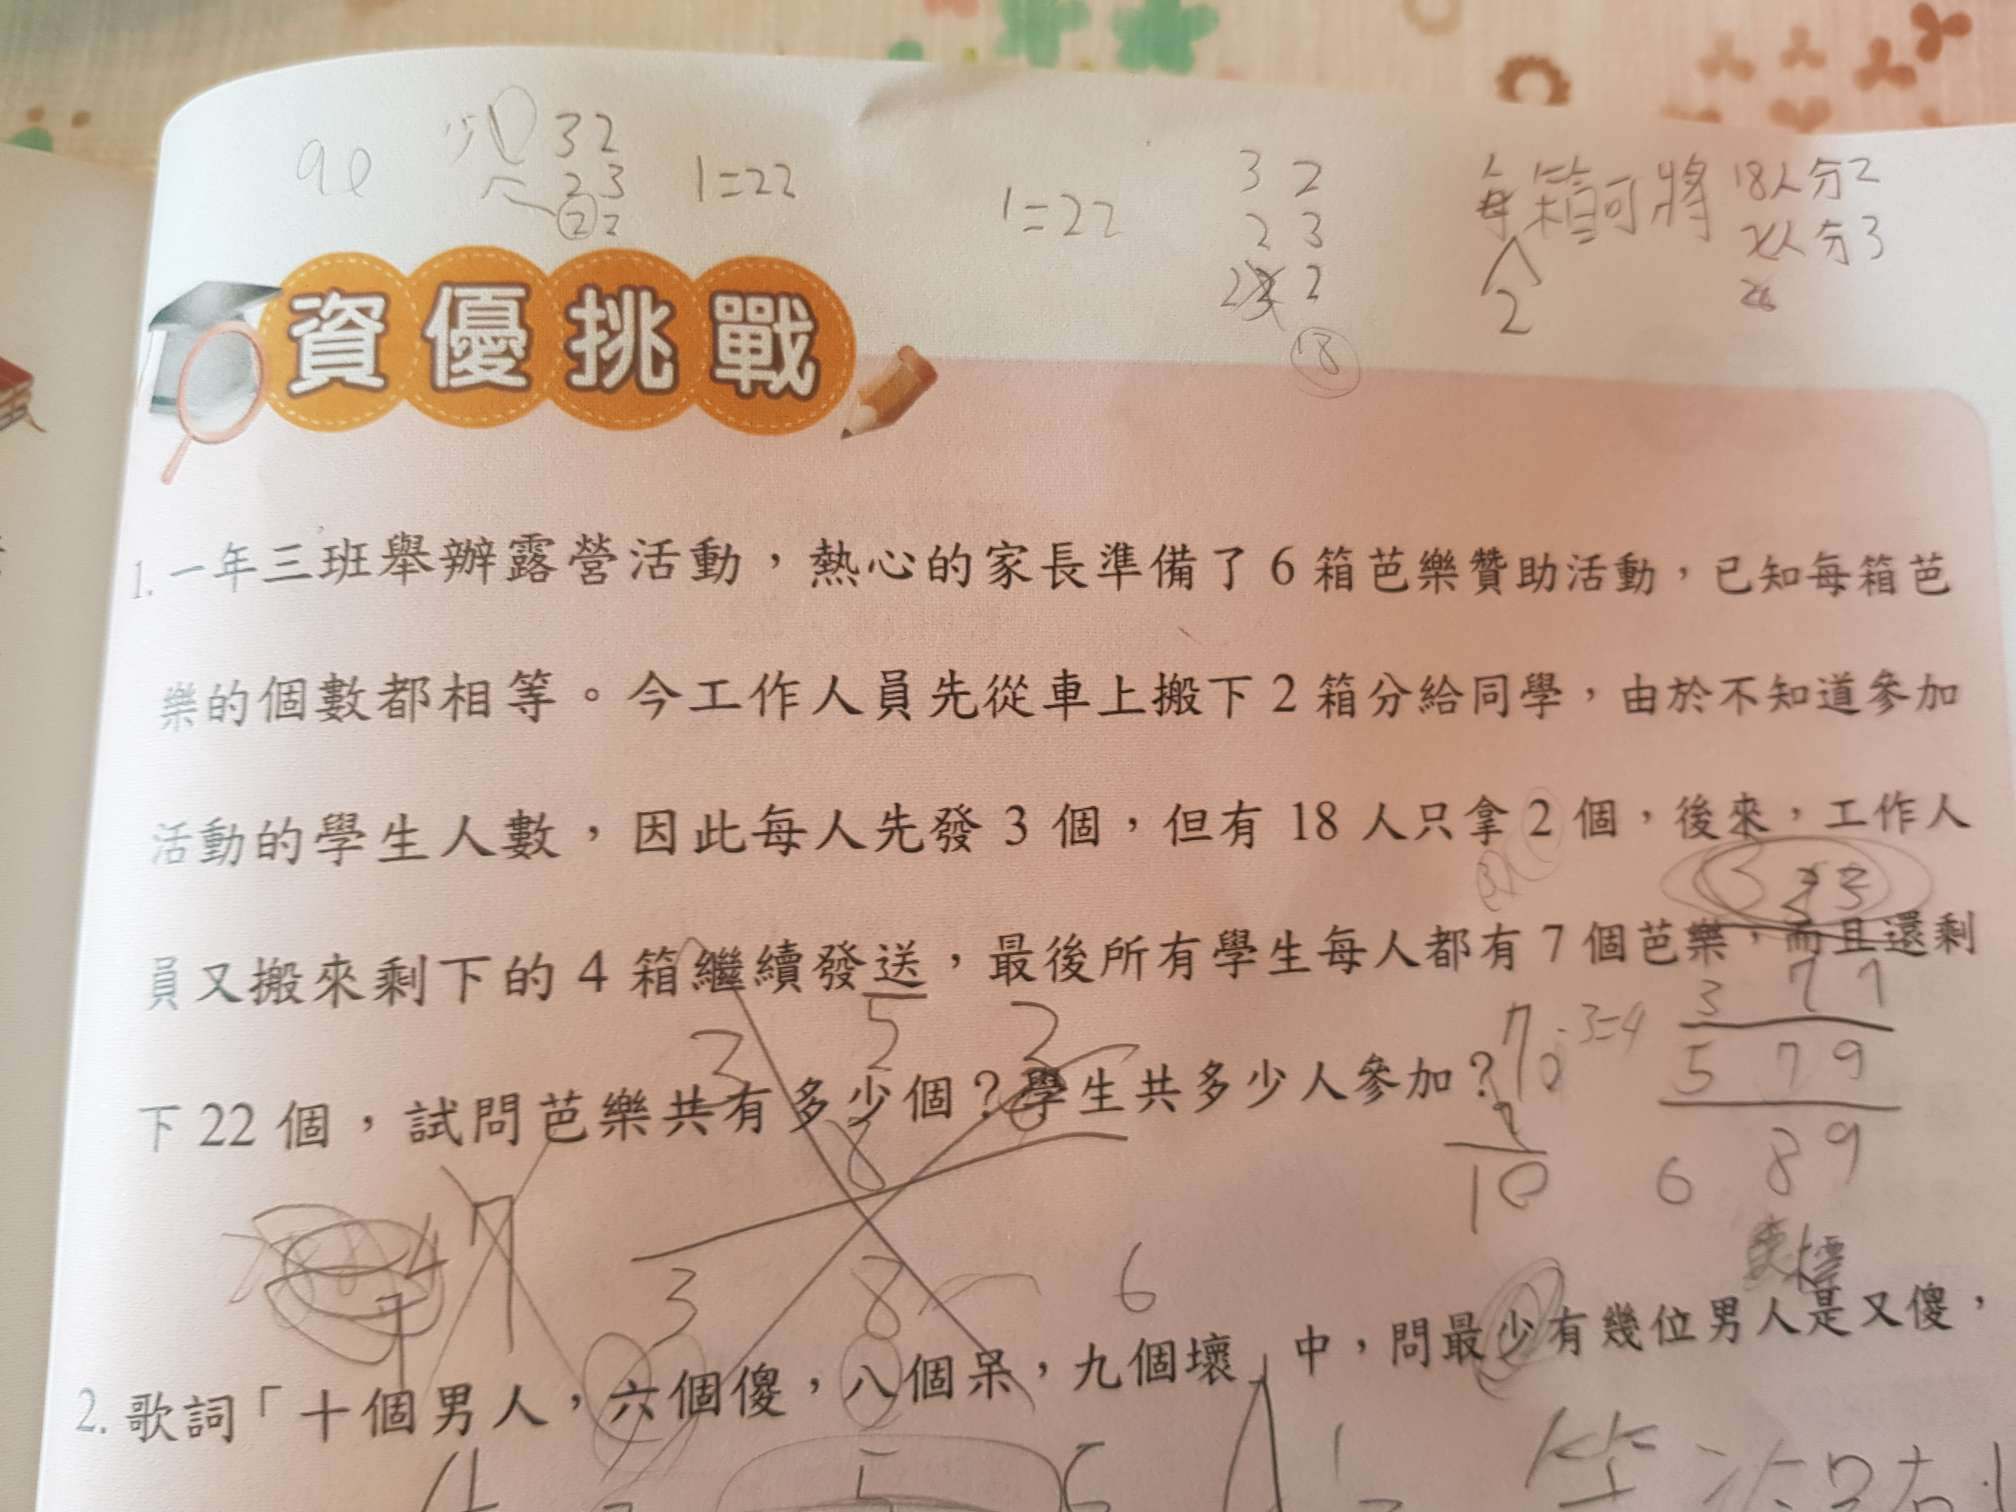 90 32
23
1=22
22
1=22
3 2
2 3
2 2
18
每箱可將 18人分2
2人分3
2
資優挑戰
1. 一年三班舉辦露營活動，熱心的家長準備了 6 箱芭樂贊助活動，已知每箱芭
樂的個數都相等。今工作人員先從車上搬下 2 箱分給同學，由於不知道參加
活動的學生人數，因此每人先發 3 個，但有 18 人只拿 2 個，後來，工作人
員又搬來剩下的 4 箱繼續發送，最後所有學生每人都有 7 個芭樂，而且還剩
3 7 7
3 5
-3=4
5 7 9
下 22 個，試問芭樂共有多少個？學生共多少人參加？
8
10
6 8 9
4 7
3 8 6
2. 歌詞「十個男人，六個傻，八個呆，九個壞」中，問最少有幾位男人是又傻，
4 5 6